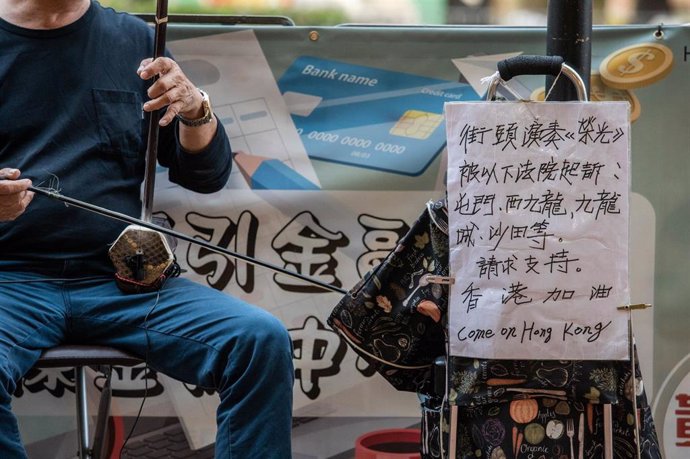 Bank name
Credit card
0000 0000 0000
引金融
金中
街頭演奏《榮光》
被以下法院起訴：
屯門、西九龍、九龍
城、沙田等。
請求支持。
香港加油
Come on Hong Kong